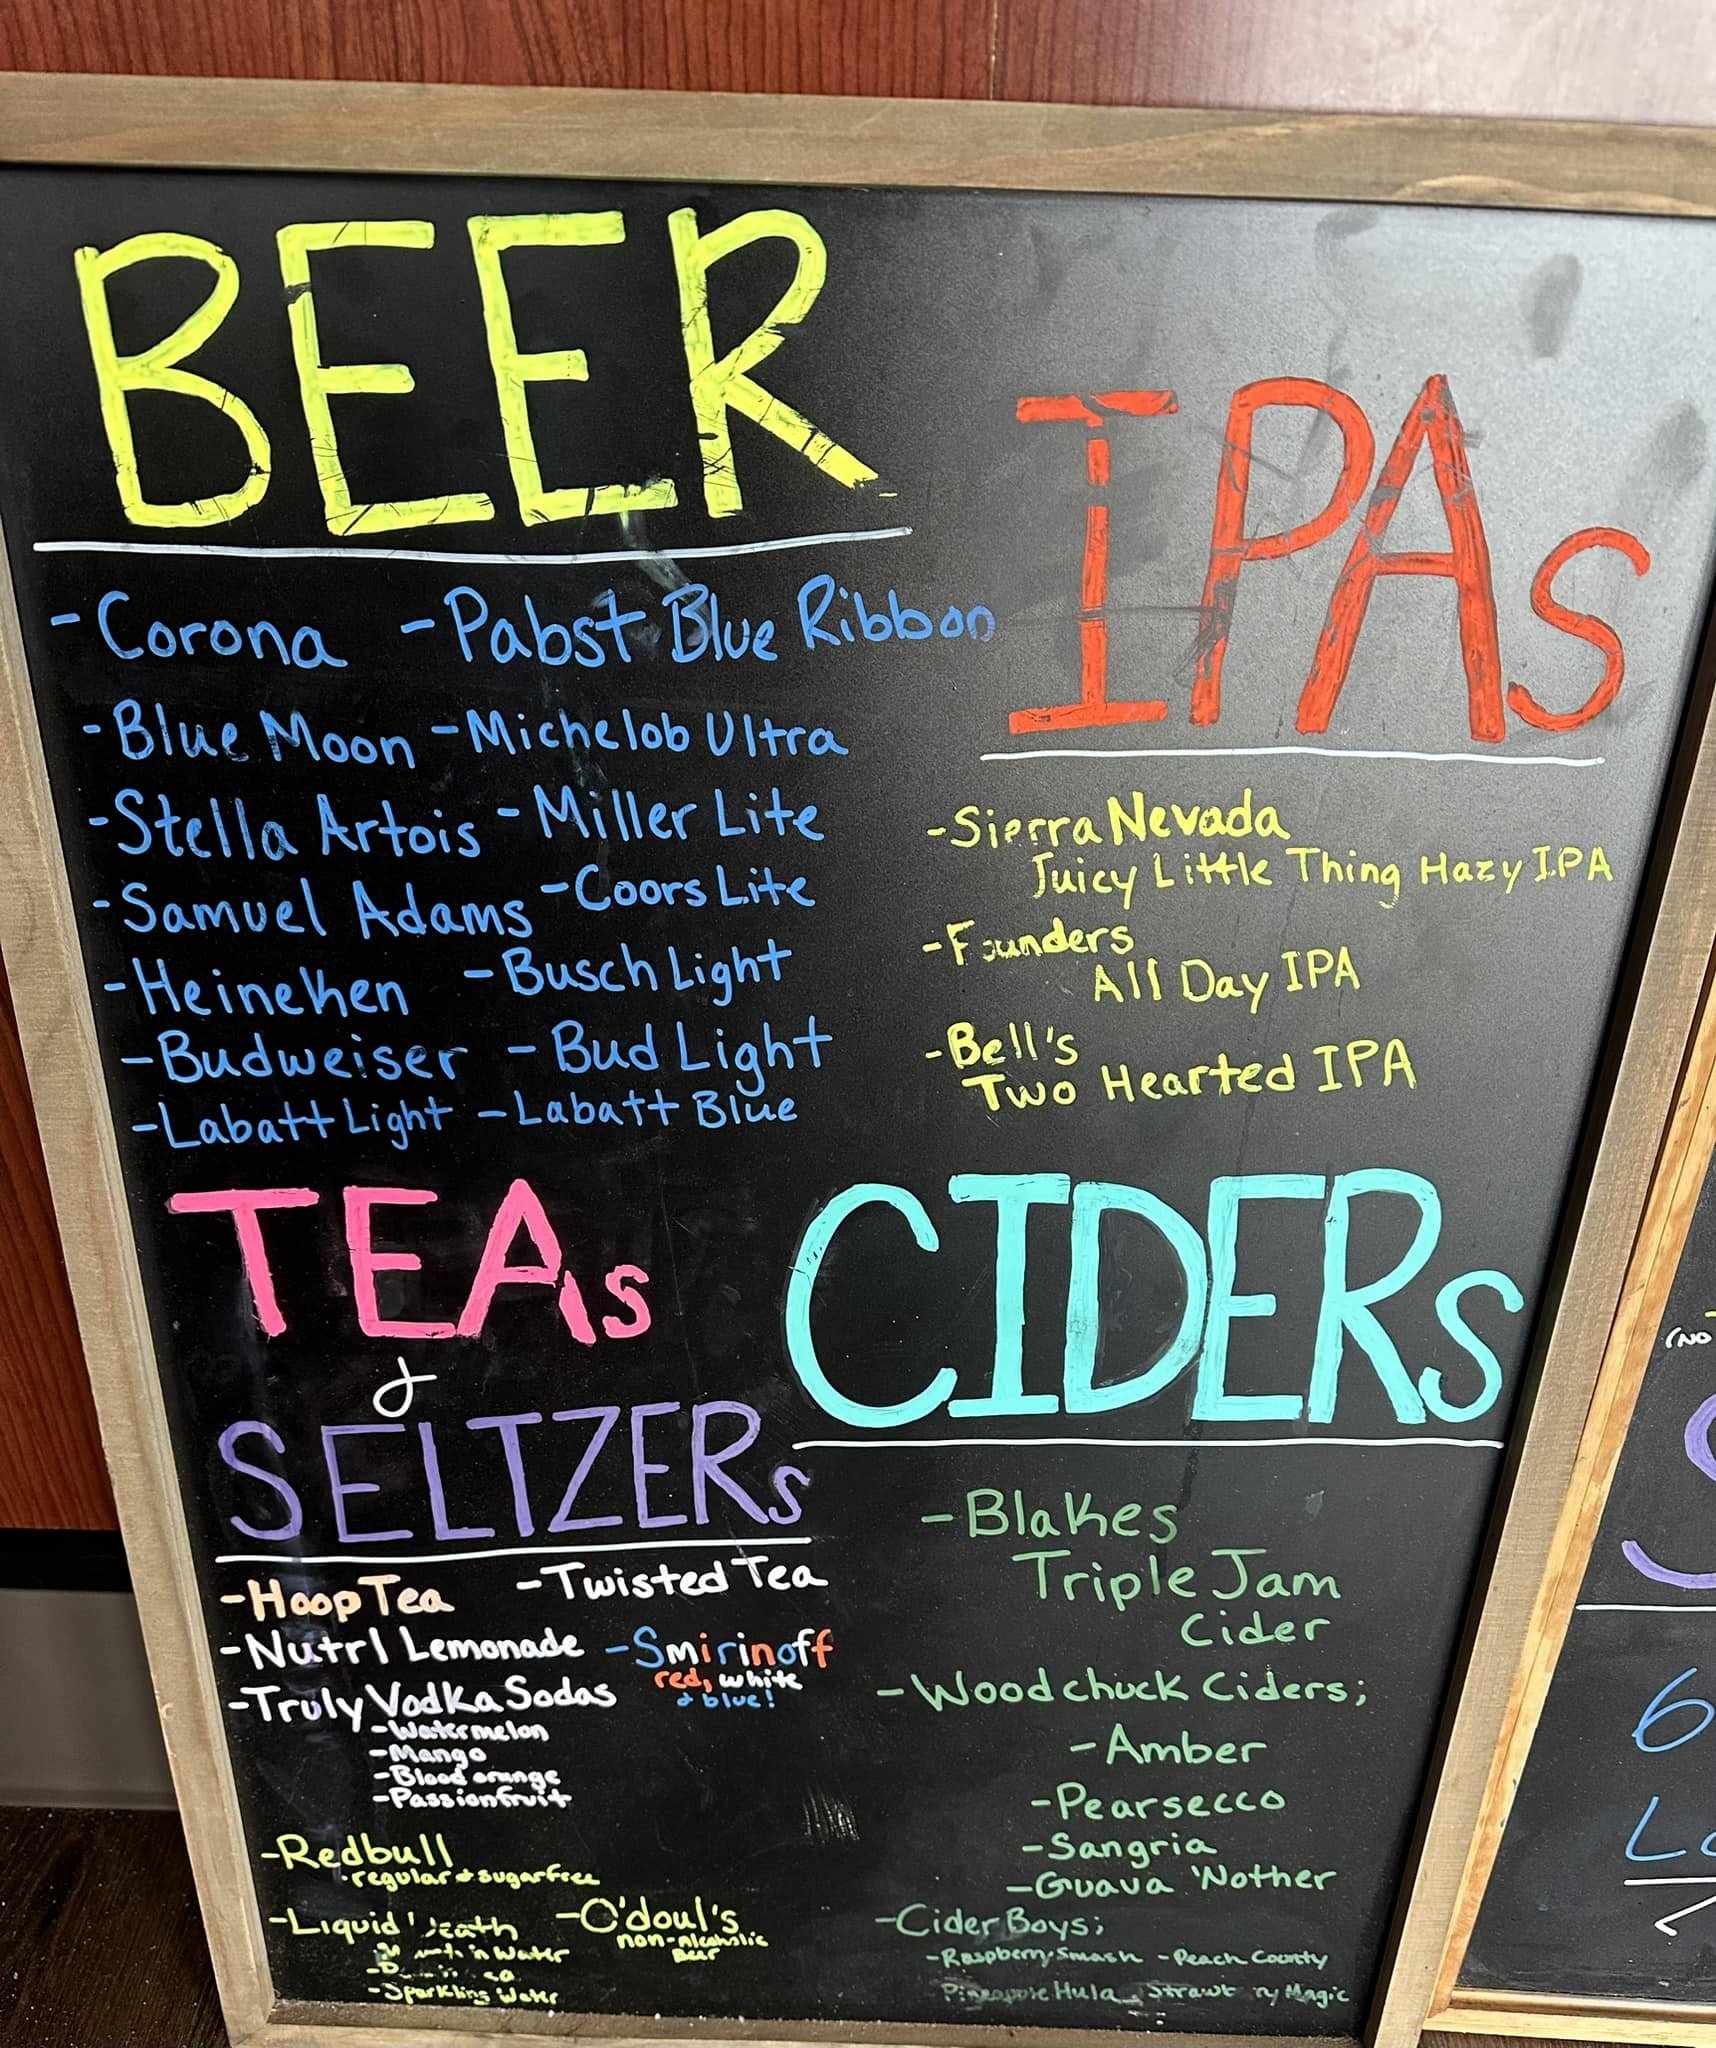 BEER
- Corona - Pabst Blue Ribbon
- Blue Moon - Michelob Ultra
- Stella Artois - Miller Lite
- Samuel Adams - Coors Lite
- Heineken - Busch Light
- Budweiser - Bud Light
- Labatt Light - Labatt Blue
IPAs
- Sierra Nevada
Juicy Little Thing Hazy IPA
- Founders
All Day IPA
- Bell's
Two Hearted IPA
TEAs
&
SELTZERs
- Hoop Tea - Twisted Tea
- Nutrl Lemonade - Smirinoff
red, white
& blue!
- Truly Vodka Sodas
- Watermelon
- Mango
- Blood orange
- Passionfruit
- Redbull
· regular & sugarfree
- Liquid Death - O'doul's
non-alcoholic
Beer
Water
- Sparkling Water
CIDERs
- Blakes
Triple Jam
Cider
- Woodchuck Ciders;
- Amber
- Pearsecco
- Sangria
- Guava 'Nother
- Cider Boys;
- Raspberry Smash - Peach County
Pineapple Hula Magic
(NO
6